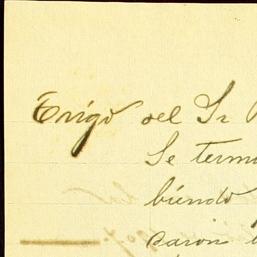 Trigo del Sr
Se termi
biendo
caron